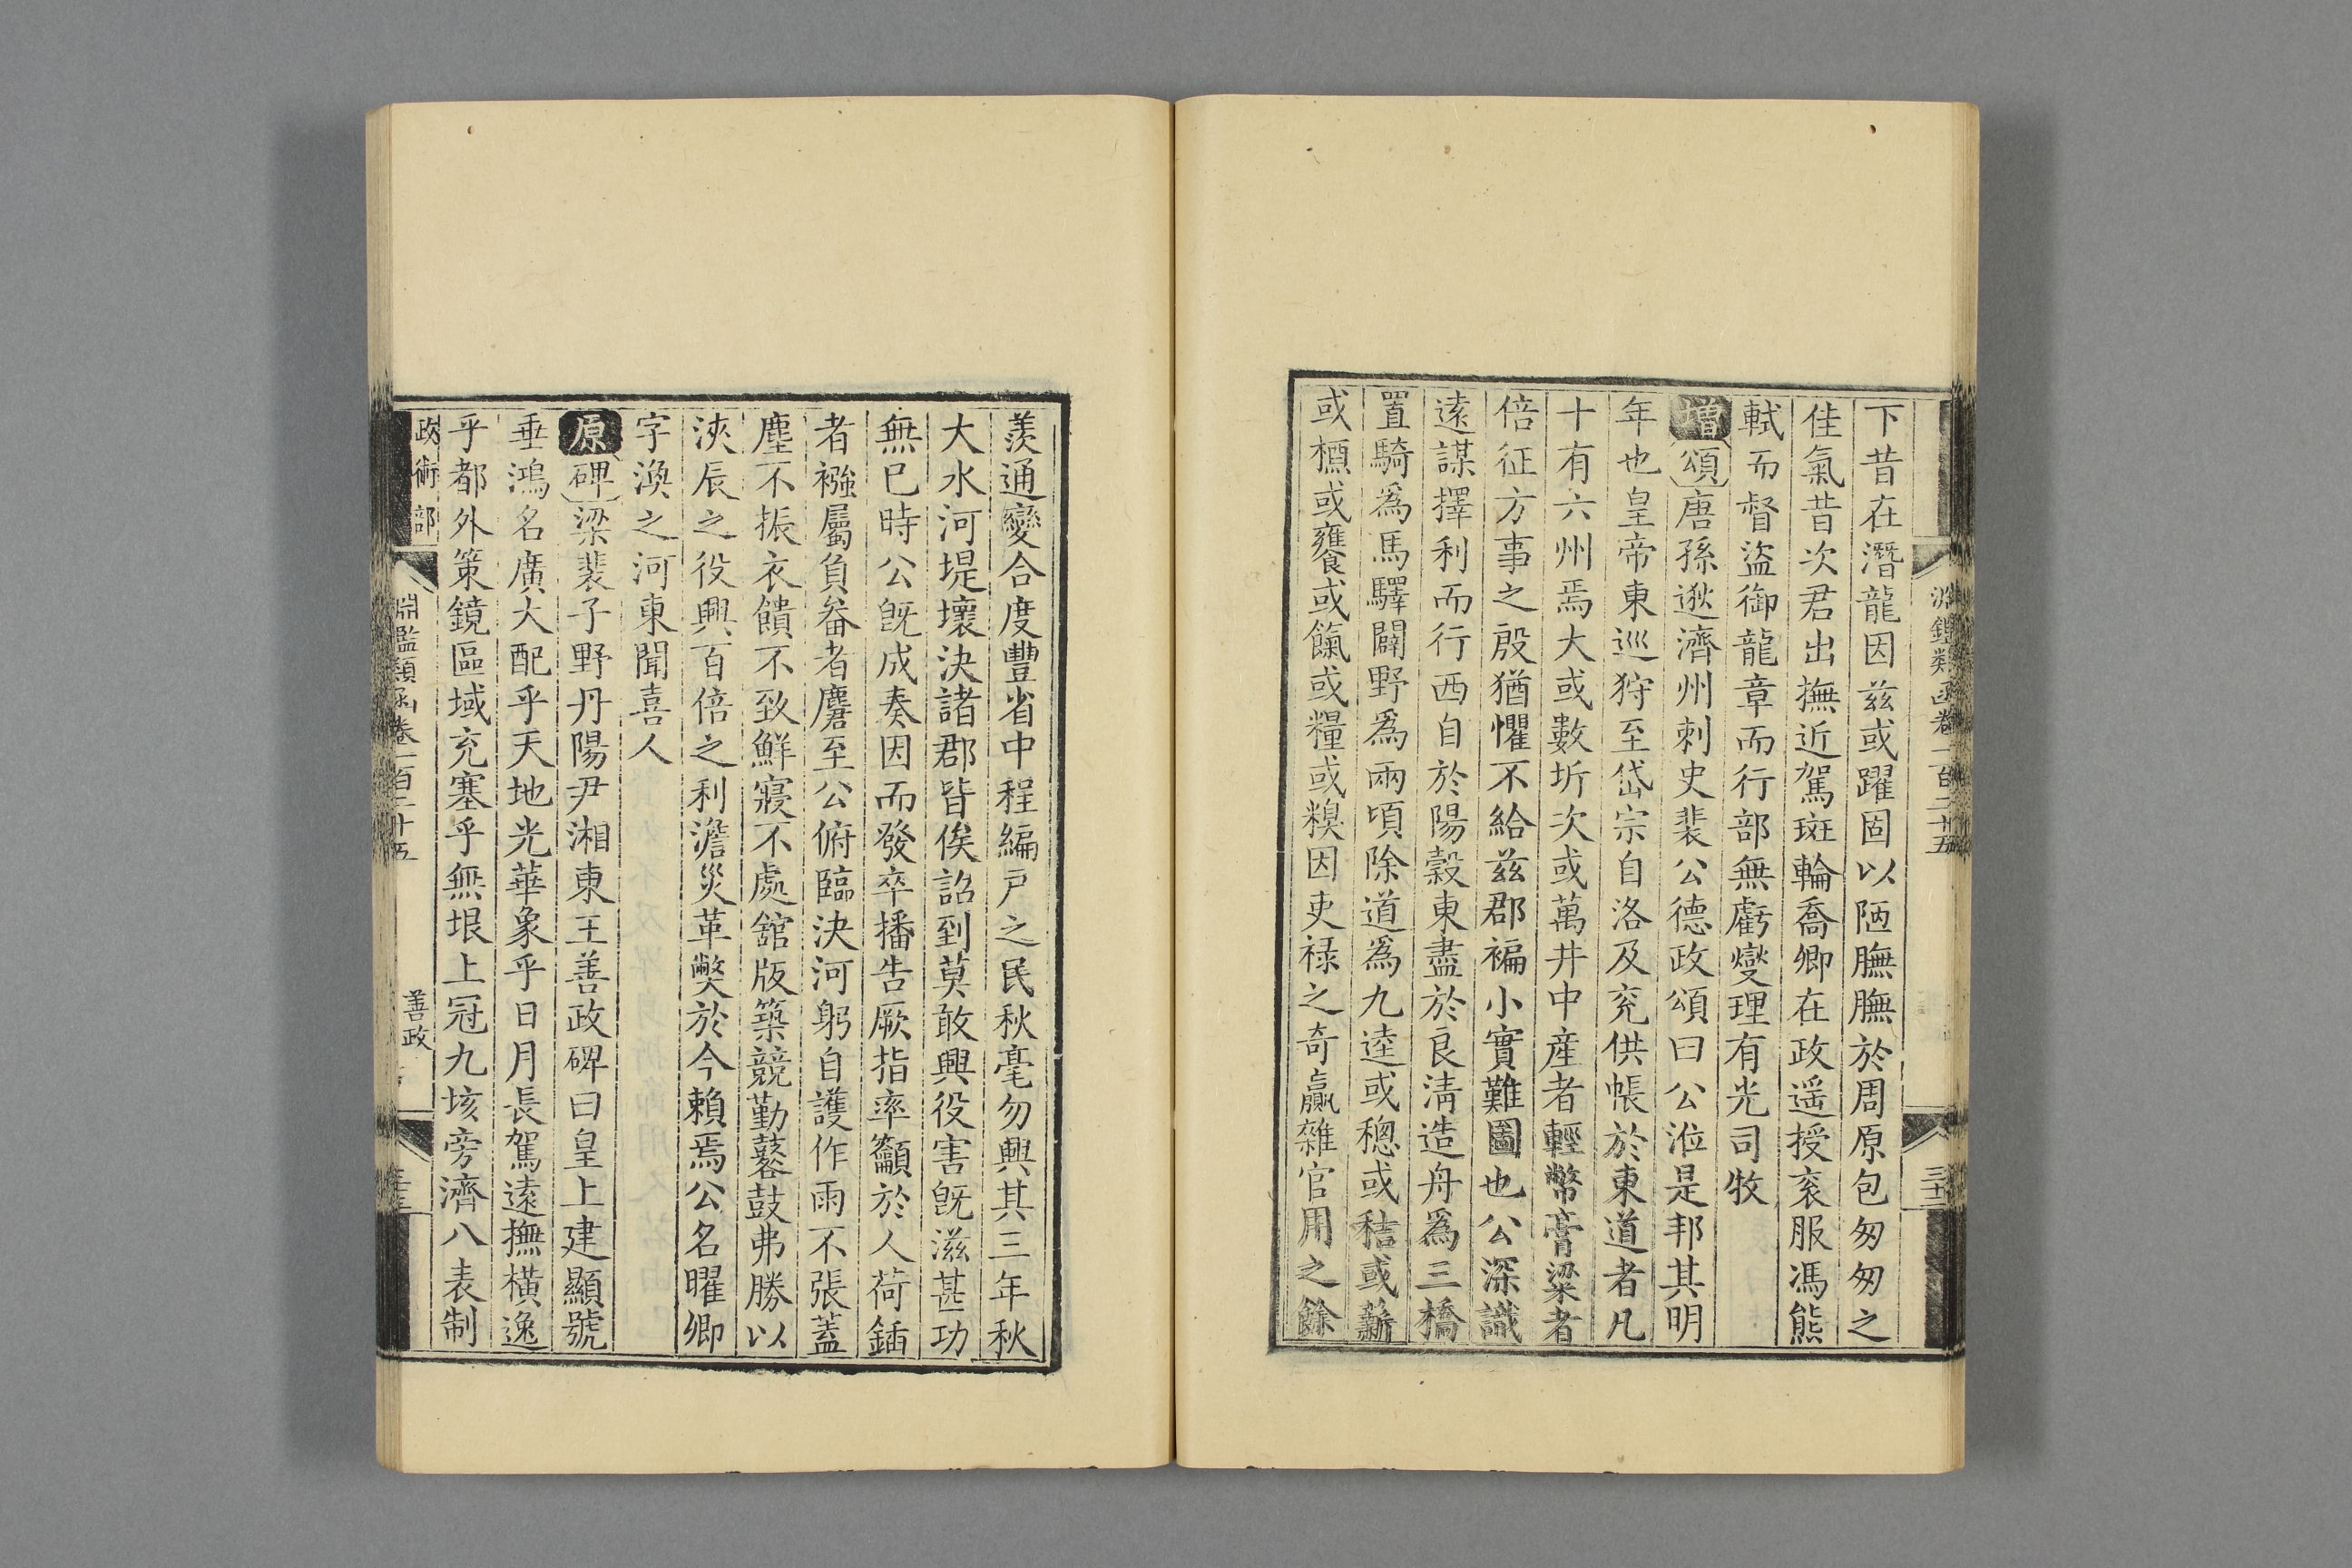 下昔在潛龍因茲或躍固以陋膴膴於周原包匆匆之
佳氣昔次君出撫近駕斑輪喬卿在政遥授衮服馮熊
軾而督盜御龍章而行部無虧燮理有光司牧
增頌唐孫逖濟州刺史裴公德政頌曰公涖是邦其明
年也皇帝東巡狩至岱宗自洛及兖供帳於東道者凡
十有六州焉大或數圻次或萬井中産者輕幣膏粱者
倍征方事之殷猶懼不給茲郡褊小實難圖也公深識
遠謀擇利而行西自於陽穀東盡於良淸造舟爲三橋
置騎爲馬驛闢野爲兩頃除道爲九逵或穗或秸或薪
或槱或饔或餼或糧或糗因吏祿之奇贏雜官用之餘
淵鑑類函卷一百二十五
三十二
羨通變合度豐省中程編戸之民秋毫勿興其三年秋
大水河堤壞決諸郡皆俟詔到莫敢興役害旣滋甚功
無已時公旣成奏因而發卒播告厥指率籲於人荷鍤
者襁屬負畚者麕至公俯臨決河躬自護作雨不張蓋
塵不振衣饋不致鮮寢不處舘版築競勤鼛鼓弗勝以
浹辰之役興百倍之利澹災革獘於今賴焉公名曜卿
字渙之河東聞喜人
原碑梁裴子野丹陽尹湘東王善政碑曰皇上建顯號
垂鴻名廣大配乎天地光華象乎日月長駕遠撫橫逸
乎都外策鏡區域充塞乎無垠上冠九垓旁濟八表制
政術部
淵鑑類函卷一百二十五
善政